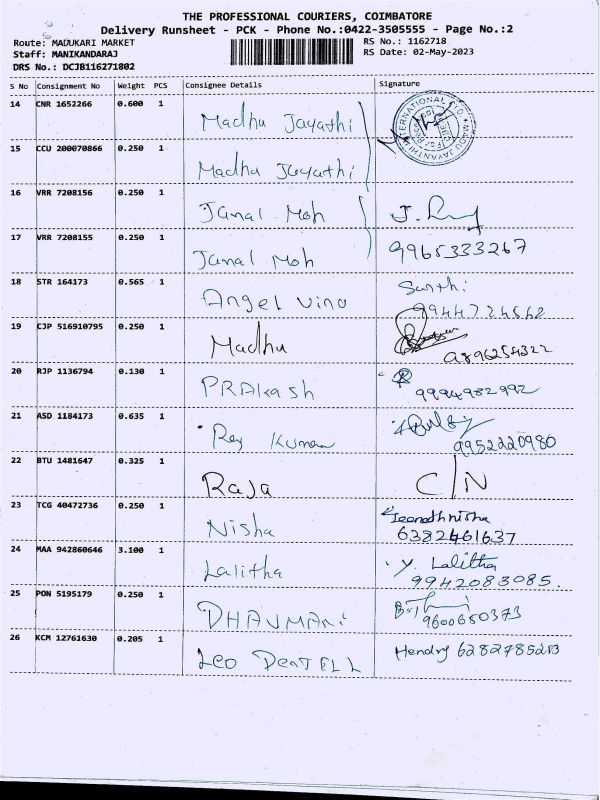 THE PROFESSIONAL COURIERS, COIMBATORE
Delivery Runsheet - PCK - Phone No.:0422-3505555 - Page No.:2
Route: MADUKARI MARKET RS No.: 1162718
Staff: MANIKANDARAJ RS Date: 02-May-2023
DRS No.: DCJB116271802
S No Consignment No Weight PCS Consignee Details Signature
14 CNR 1652266 0.600 1 Madhu Jayathi
15 CCU 200070866 0.250 1 Madhu Jayathi
16 VRR 7208156 0.250 1 Jamal Moh
17 VRR 7208155 0.250 1 Jamal Moh 9965333267
18 STR 164173 0.565 1 Angel Vino Santhi
9944724662
19 CJP 516910795 0.250 1 Madhu
20 RJP 1136794 0.130 1 PRAkash 9994982992
21 ASD 1184173 0.635 1 Raj Kumar 9952220980
22 BTU 1481647 0.325 1 Raja C/N
23 TCG 40472736 0.250 1 Nisha
6382461637
24 MAA 942860646 3.100 1 Lalitha Y Lalitha
9942083085.
25 PON 5195179 0.250 1 9600650373
26 KCM 12761630 0.205 1 Leo DenTELL Hendry 6282785213